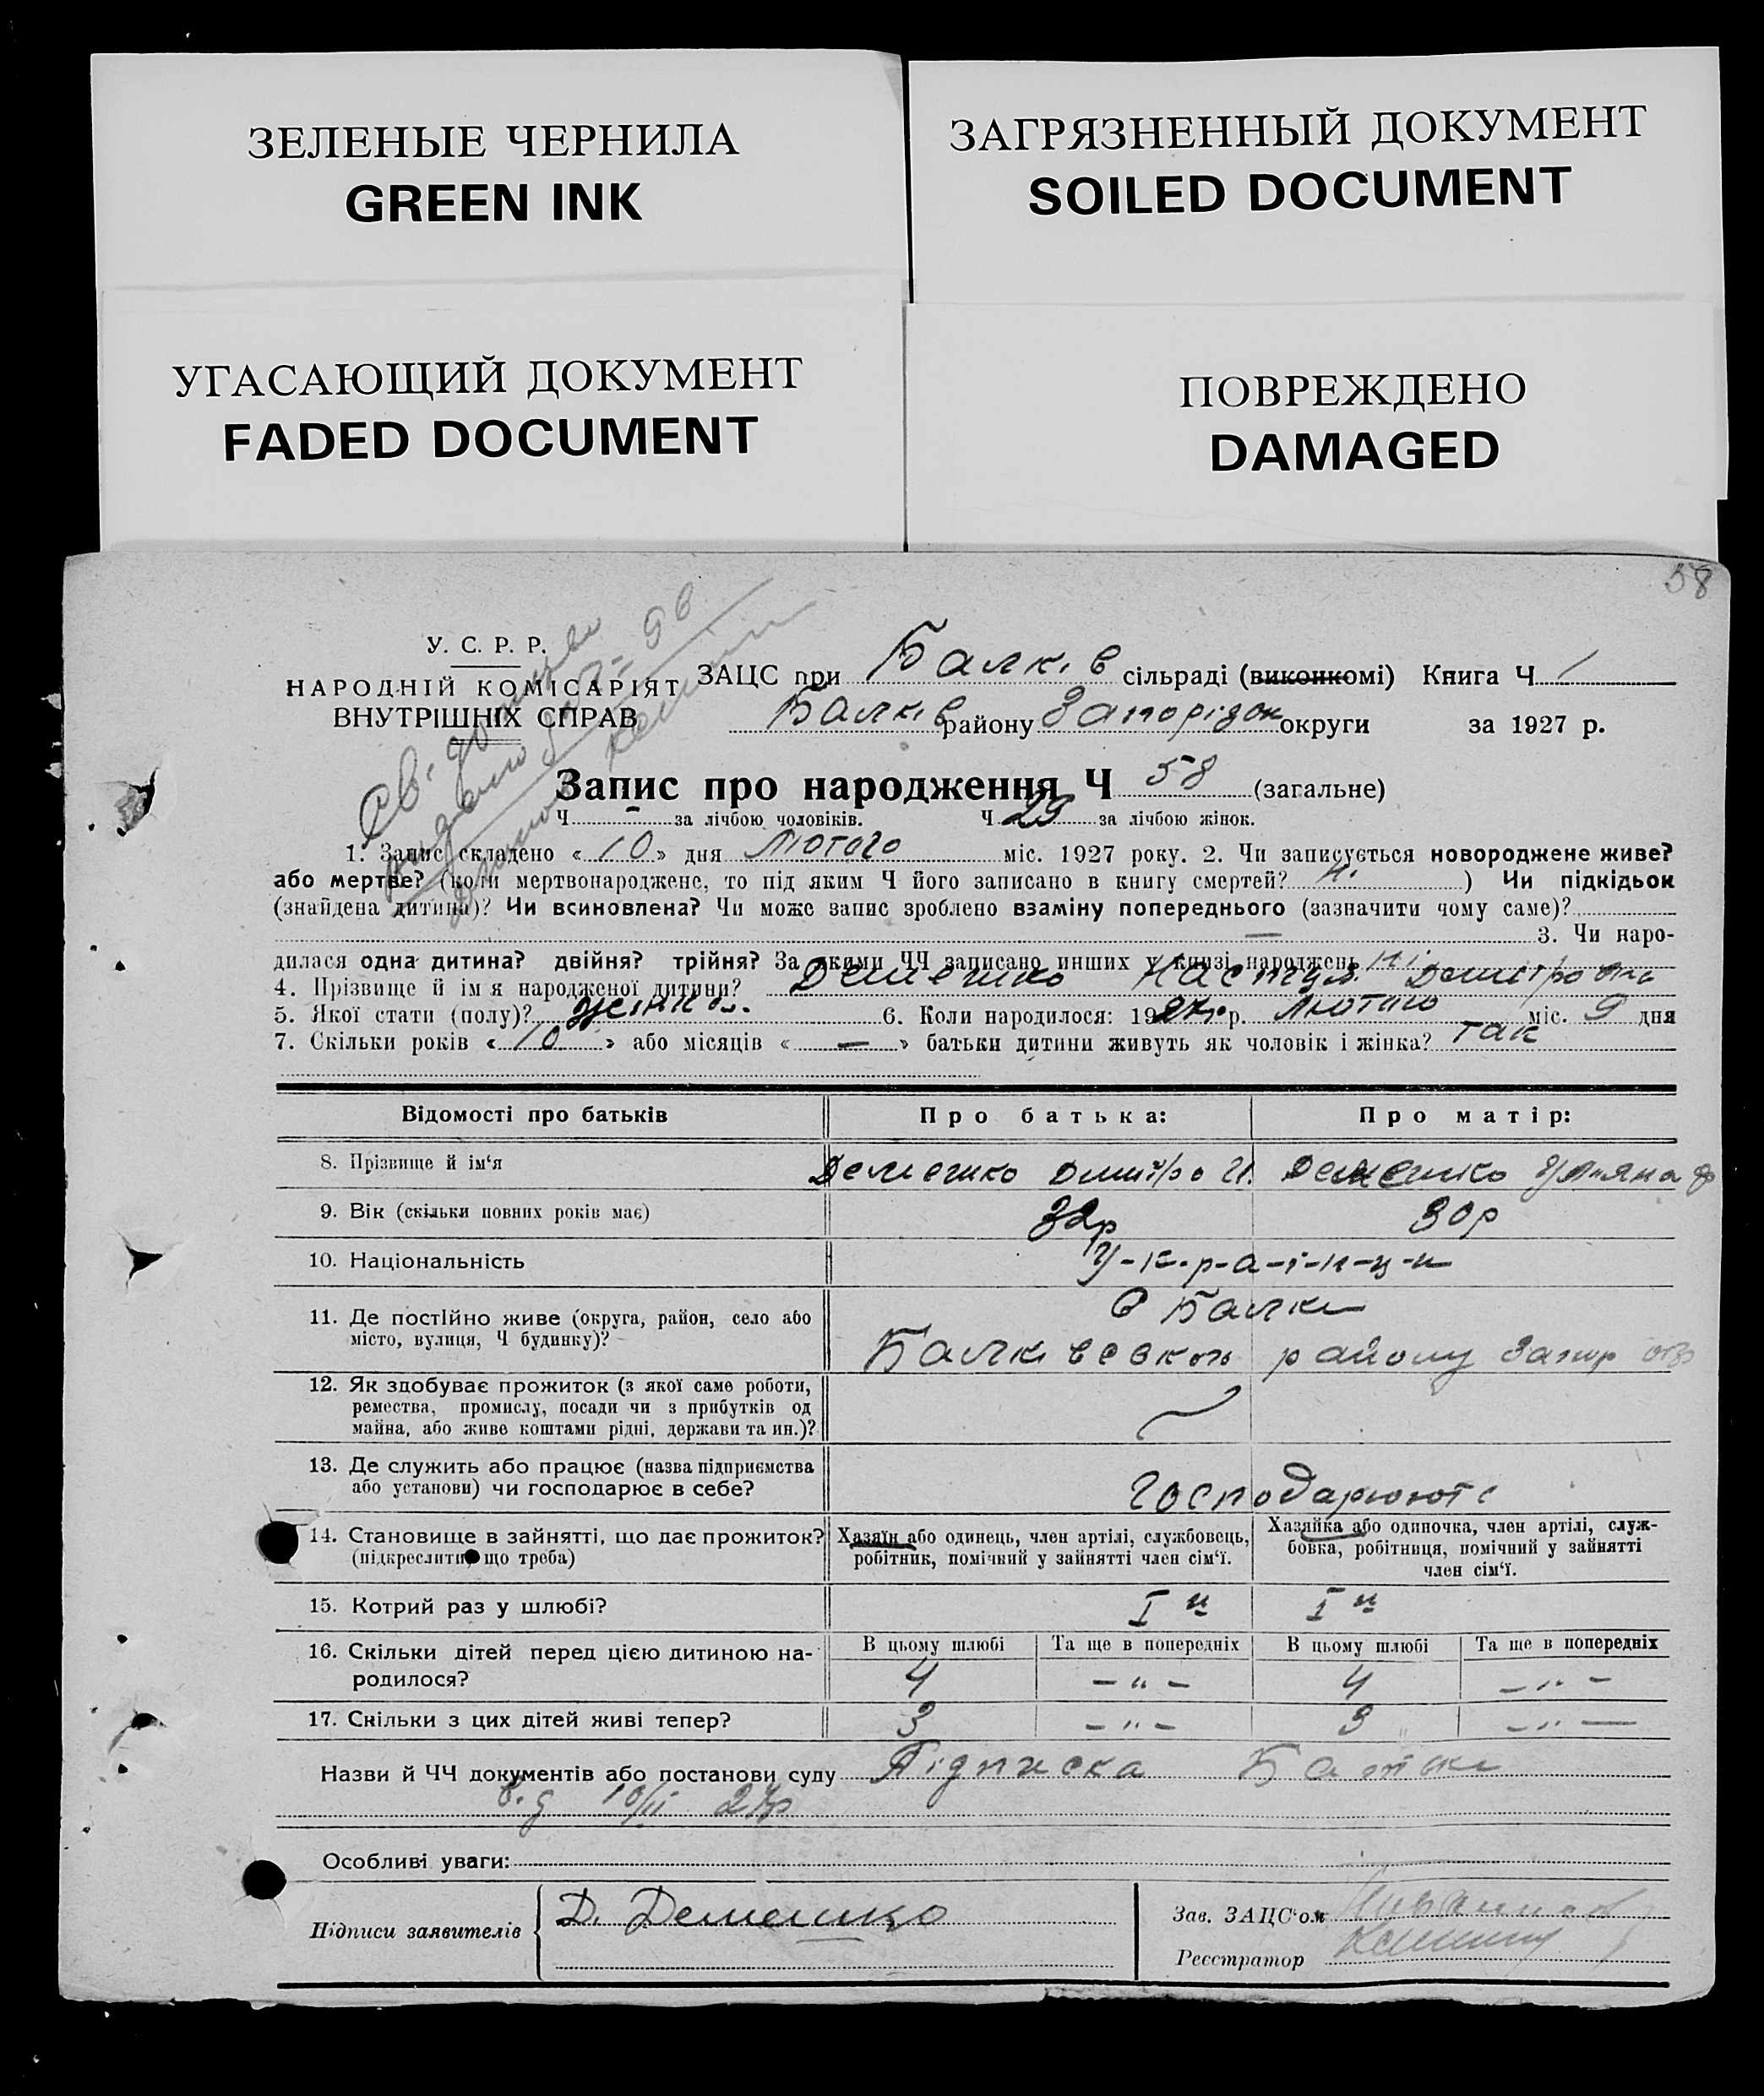 ЗЕЛЕНЫЕ ЧЕРНИЛА
GREEN INK
ЗАГРЯЗНЕННЫЙ ДОКУМЕНТ
SOILED DOCUMENT
УГАСАЮЩИЙ ДОКУМЕНТ
FADED DOCUMENT
ПОВРЕЖДЕНО
DAMAGED
58
У. С. Р. Р.
НАРОДНІЙ КОМІСАРІЯТ
ВНУТРІШНІХ СПРАВ
ЗАЦС при Балків сільраді (виконкомі) Книга Ч 1
Балків району Запорізок округи за 1927 р.
Запис про народження Ч 58 (загальне)
Ч - за лічбою чоловіків. Ч 29 за лічбою жінок.
1. Запис складено « 10 » дня Лютого міс. 1927 року. 2. Чи записується новороджене живе?
або мертве? (коли мертвонароджене, то під яким Ч його записано в книгу смертей? ) Чи підкідьок
(знайдена дитина)? Чи всиновлена? Чи може запис зроблено взаміну попереднього (зазначити чому саме)?
— 3. Чи наро-
дилася одна дитина? двійня? трійня? За якими ЧЧ записано инших у книзі народжень Ні
4. Прізвище й ім'я народженої дитини? Демешко Настя
5. Якої стати (полу)? 6. Коли народилося: 1927 р. Лютого міс. 9 дня
7. Скільки років « 10 » або місяців « — » батьки дитини живуть як чоловік і жінка? Так
Відомості про батьків
Про батька:
Про матір:
8. Прізвище й ім'я Демешко Дмитро И. Демешко Уляна Ф
9. Вік (скільки повних років має) 32р 30р
10. Національність У-к-р-а-ї-н-ц-и
11. Де постійно живе (округа, район, село або
місто, вулиця, Ч будинку)?
с Балки
Балківсвког району Запор окр
12. Як здобуває прожиток (з якої саме роботи,
ремества, промислу, посади чи з прибутків од
майна, або живе коштами рідні, держави та ин.)?
13. Де служить або працює (назва підприємства
або установи) чи господарює в себе?
Господарюють
14. Становище в зайнятті, що дає прожиток?
(підкреслити, що треба)
Хазяїн або одинець, член артілі, службовець,
робітник, помічний у зайнятті член сім'ї.
Хазяйка або одиночка, член артілі, служ-
бовка, робітниця, помічний у зайнятті
член сім'ї.
15. Котрий раз у шлюбі? I й I й
16. Скільки дітей перед цією дитиною на-
родилося?
В цьому шлюбі Та ще в попередніх В цьому шлюбі Та ще в попередніх
4 - " - 4 - " -
17. Скільки з цих дітей живі тепер? 3 - " - 3 - " -
Назви й ЧЧ документів або постанови суду Підписка Батька
10/II 27р
Особливі уваги:
Підписи заявителів
Д. Демешко
Зав. ЗАЦС'ом
Реєстратор